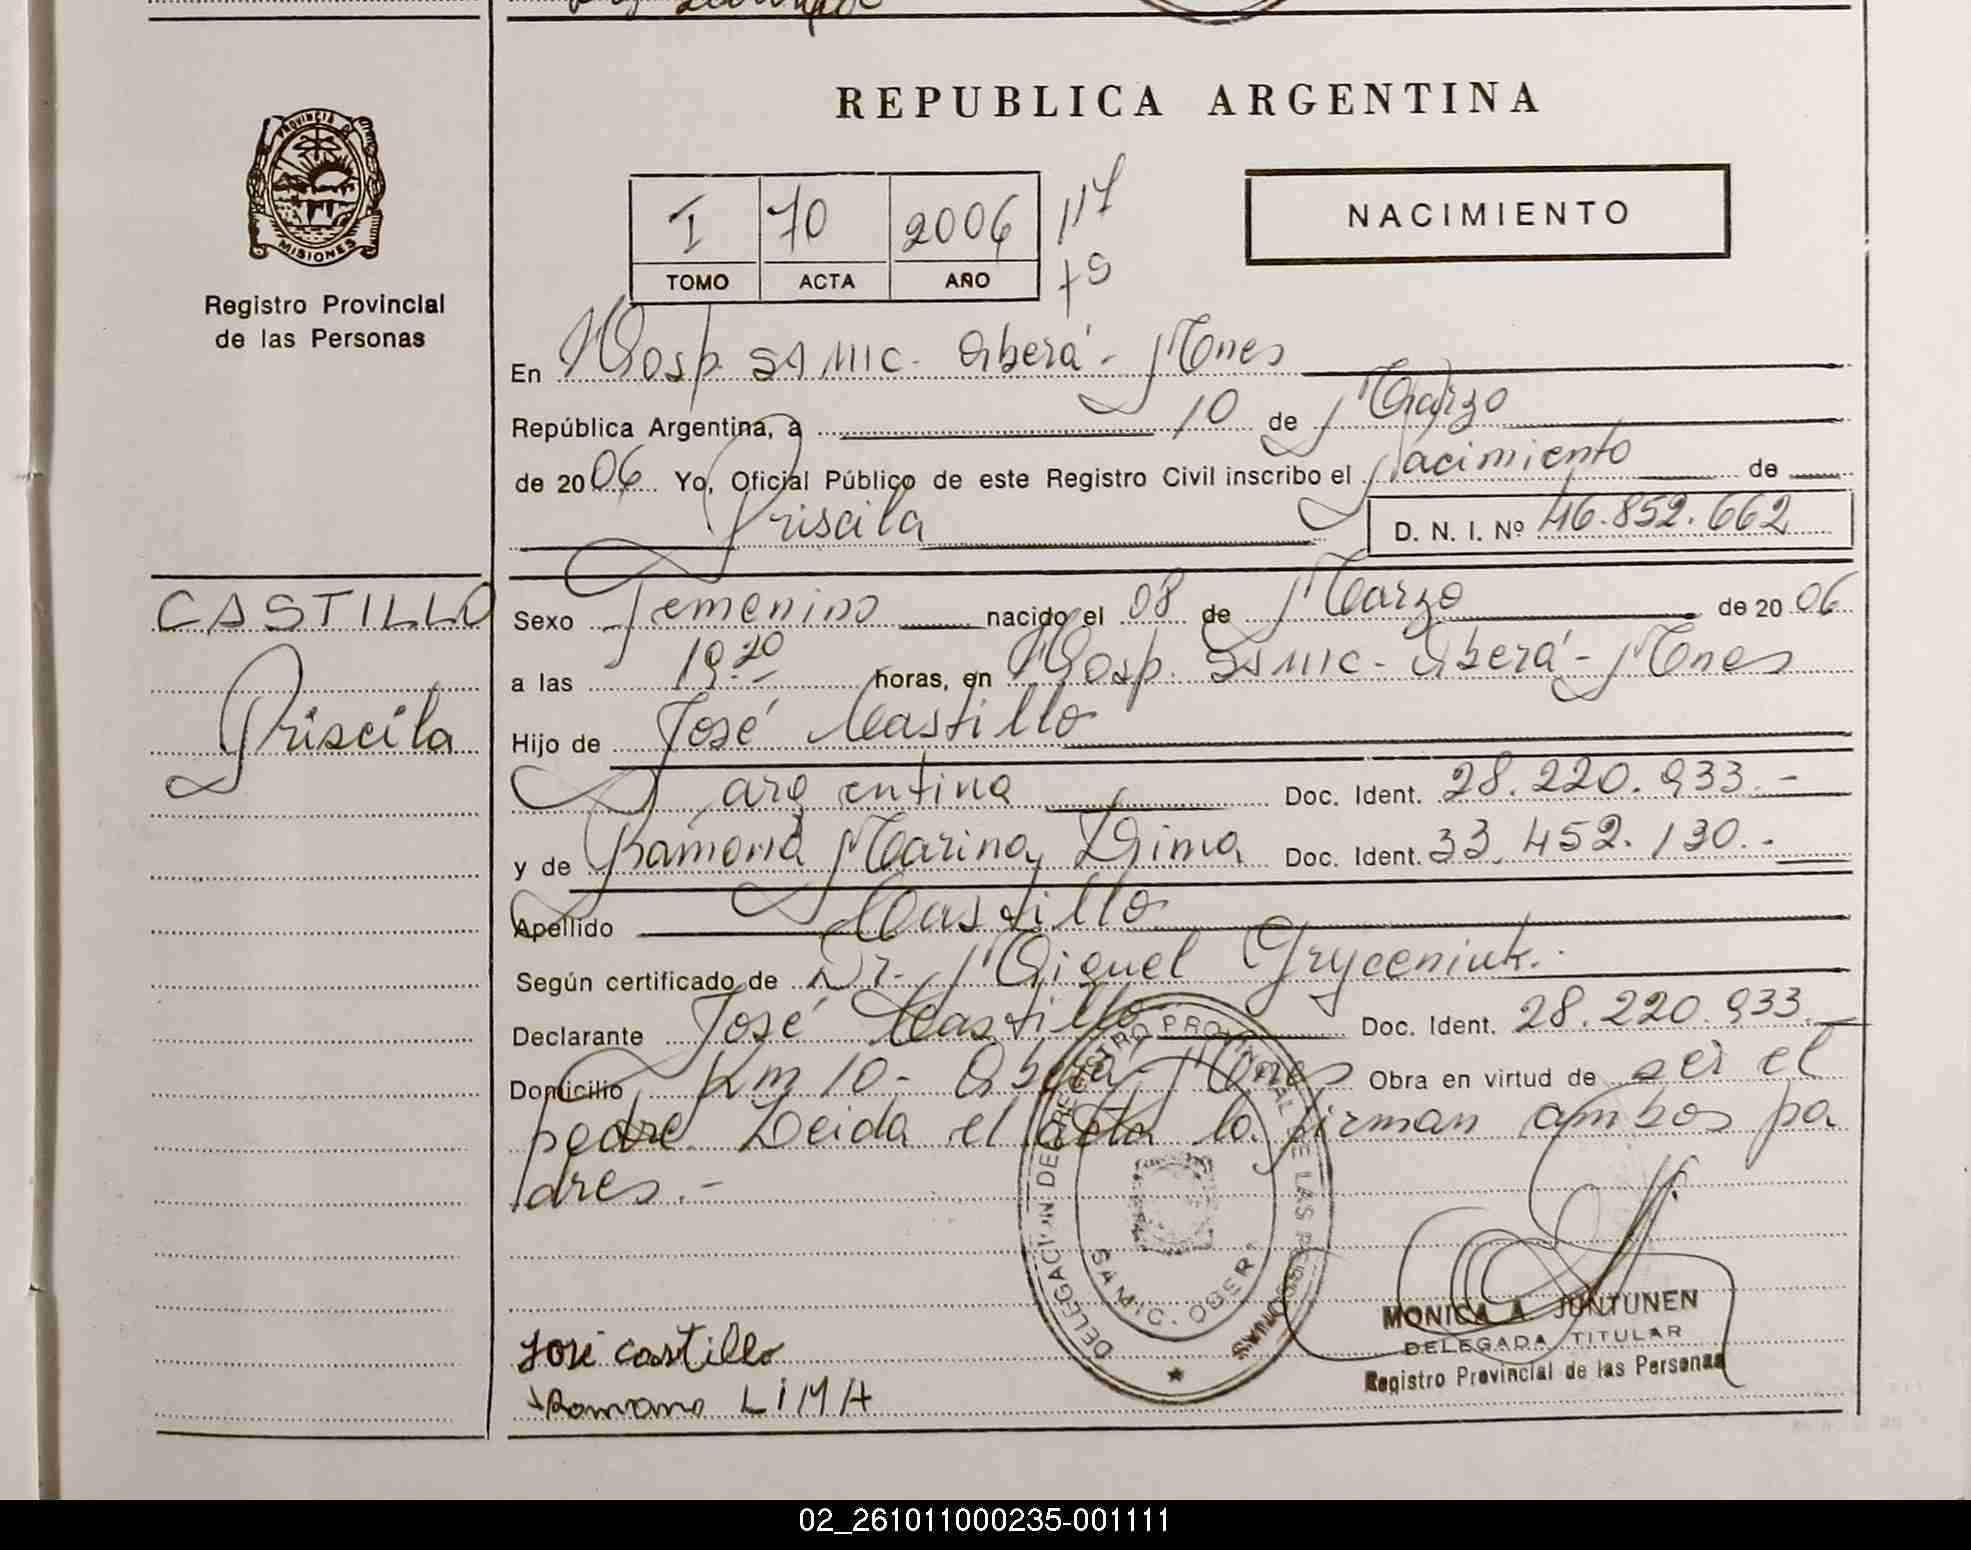 REPUBLICA ARGENTINA
PROVINCIA DE
MISIONES
Registro Provincial
de las Personas
I 70 2006
TOMO ACTA AÑO
NACIMIENTO
En Hosp. SAMIC - Oberá - Mnes
República Argentina, a 10 de Marzo
de 2006 Yo, Oficial Público de este Registro Civil inscribo el Nacimiento de
Priscila D. N. I. Nº 46.852.662
CASTILLO
Priscila
Sexo Femenino nacido el 08 de Marzo de 2006
a las 19 20 horas, en Hosp. SAMIC - Oberá - Mnes
Hijo de José Castillo
argentina Doc. Ident. 28.220.933.-
y de Ramona Marina Lima Doc. Ident. 33.452.130.-
Apellido Castillo
Según certificado de Dr. Miguel Gryceniuk.
Declarante José Castillo Doc. Ident. 28.220.933.
Domicilio Km 10 - Oberá - Mnes Obra en virtud de ser el
padre. Leida el acta la firman ambos pa
dres.-
DELEGACION DE REGISTRO PROVINCIAL DE LAS PERSONAS
SAMIC. OBERA
José castillo
Ramona LIMA
MONICA A. JUNTUNEN
DELEGADA TITULAR
Registro Provincial de las Personas
02_261011000235-001111